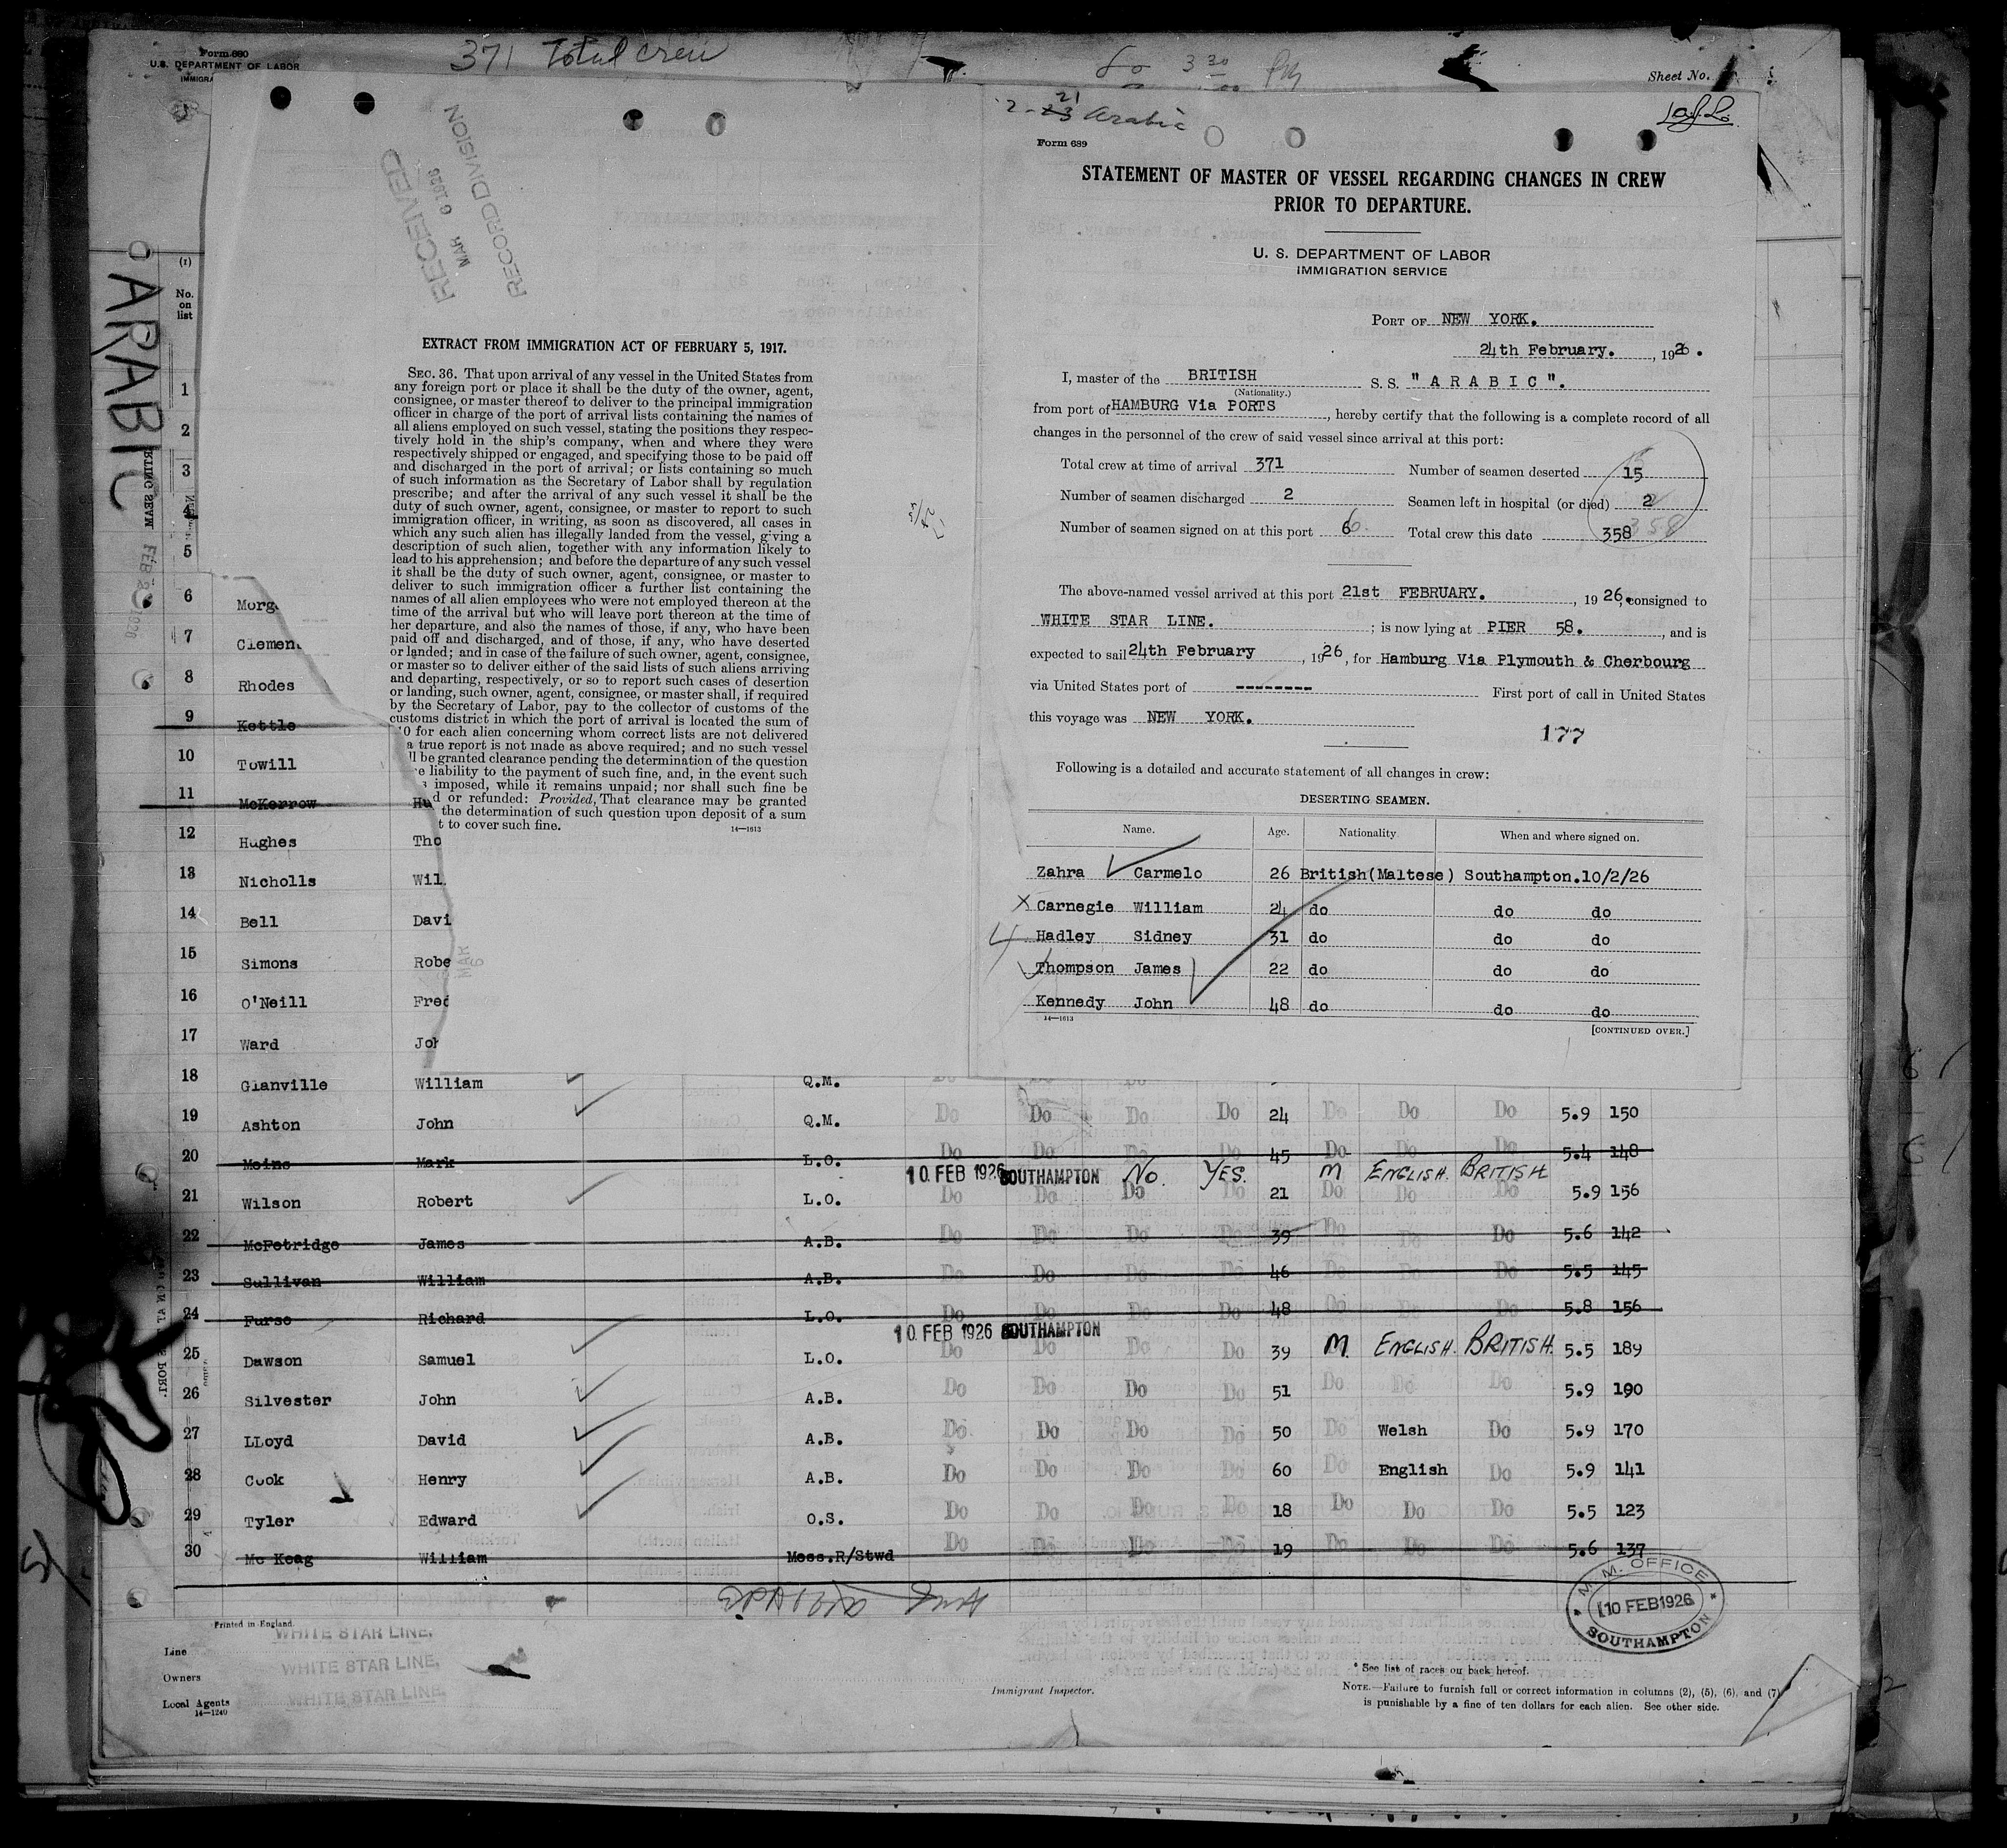 Form 680
U.S. DEPARTMENT OF LABOR
IMMIGRA
371 Total crew
3 30 PM
Sheet No.
ARABIC
RECEIVED
MAR 6 1926
RECORD DIVISION
EXTRACT FROM IMMIGRATION ACT OF FEBRUARY 5, 1917.
SEC. 36. That upon arrival of any vessel in the United States from
any foreign port or place it shall be the duty of the owner, agent,
consignee, or master thereof to deliver to the principal immigration
officer in charge of the port of arrival lists containing the names of
all aliens employed on such vessel, stating the positions they respec-
tively hold in the ship's company, when and where they were
respectively shipped or engaged, and specifying those to be paid off
and discharged in the port of arrival; or lists containing so much
of such information as the Secretary of Labor shall by regulation
prescribe; and after the arrival of any such vessel it shall be the
duty of such owner, agent, consignee, or master to report to such
immigration officer, in writing, as soon as discovered, all cases in
which any such alien has illegally landed from the vessel, giving a
description of such alien, together with any information likely to
lead to his apprehension; and before the departure of any such vessel
it shall be the duty of such owner, agent, consignee, or master to
deliver to such immigration officer a further list containing the
names of all alien employees who were not employed thereon at the
time of the arrival but who will leave port thereon at the time of
her departure, and also the names of those, if any, who have been
paid off and discharged, and of those, if any, who have deserted
or landed; and in case of the failure of such owner, agent, consignee,
or master so to deliver either of the said lists of such aliens arriving
and departing, respectively, or so to report such cases of desertion
or landing, such owner, agent, consignee, or master shall, if required
by the Secretary of Labor, pay to the collector of customs of the
customs district in which the port of arrival is located the sum of
10 for each alien concerning whom correct lists are not delivered
a true report is not made as above required; and no such vessel
ll be granted clearance pending the determination of the question
e liability to the payment of such fine, and, in the event such
s imposed, while it remains unpaid; nor shall such fine be
d or refunded: Provided, That clearance may be granted
the determination of such question upon deposit of a sum
t to cover such fine.
14—1613
2-23 21 Arabic
Form 689
STATEMENT OF MASTER OF VESSEL REGARDING CHANGES IN CREW
PRIOR TO DEPARTURE.
U. S. DEPARTMENT OF LABOR
IMMIGRATION SERVICE
PORT OF NEW YORK.
24th February. , 1926.
I, master of the BRITISH S.S. "ARABIC".
(Nationality.)
from port of HAMBURG Via PORTS , hereby certify that the following is a complete record of all
changes in the personnel of the crew of said vessel since arrival at this port:
Total crew at time of arrival 371 Number of seamen deserted 15
Number of seamen discharged 2 Seamen left in hospital (or died) 2
Number of seamen signed on at this port 6 6. Total crew this date 358 358
The above-named vessel arrived at this port 21st FEBRUARY. , 1926, consigned to
WHITE STAR LINE. ; is now lying at PIER 58. , and is
expected to sail 24th February , 1926, for Hamburg Via Plymouth & Cherbourg
via United States port of -------- First port of call in United States
this voyage was NEW YORK.
177
Following is a detailed and accurate statement of all changes in crew:
DESERTING SEAMEN.
Name. Age. Nationality. When and where signed on.
Zahra Carmelo 26 British(Maltese) Southampton.10/2/26
X Carnegie William 24 do do do
4 Hadley Sidney 31 do do do
Thompson James 22 do do do
Kennedy John 48 do do do
14—1613
[CONTINUED OVER.]
(1)
No.
on
list
1
2
3
4
5
6 Morg
7 Clemen
8 Rhodes
9 Kettle
10 Towill
11 McKerrow Hu
12 Hughes Tho
13 Nicholls Wil
14 Bell Davi
15 Simons Robe
16 O'Neill Fred
17 Ward Joh
18 Glanville William Q.M.
19 Ashton John Q.M. Do Do Do Do 24 Do Do Do 5.9 150
20 Meins Mark L.O. Do Do Do Do 45 Do Do Do 5.4 148
10 FEB 1926 SOUTHAMPTON No. YES. M ENGLISH. BRITISH
21 Wilson Robert L.O. Do Do Do Do 21 Do Do Do 5.9 156
22 McFetridge James A.B. Do Do Do Do 39 Do Do Do 5.6 142
23 Sullivan William A.B. Do Do Do Do 46 Do Do Do 5.5 145
24 Furse Richard L.O. Do Do Do Do 48 Do Do Do 5.8 156
10 FEB 1926 SOUTHAMPTON
25 Dawson Samuel L.O. Do Do Do Do 39 M. ENGLISH. BRITISH. 5.5 189
26 Silvester John A.B. Do Do Do Do 51 Do Do Do 5.9 190
27 LLoyd David A.B. Do Do Do Do 50 Do Welsh Do 5.9 170
28 Cook Henry A.B. Do Do Do Do 60 Do English Do 5.9 141
29 Tyler Edward O.S. Do Do Do Do 18 Do Do Do 5.5 123
30 Mc Keag William Mess.R/Stwd Do Do Do Do 19 Do Do Do 5.6 137
M. M. OFFICE
10 FEB 1926
SOUTHAMPTON
Printed in England.
Line WHITE STAR LINE.
Owners WHITE STAR LINE.
Local Agents WHITE STAR LINE.
14—1240
Immigrant Inspector.
* See list of races on back hereof.
NOTE.—Failure to furnish full or correct information in columns (2), (5), (6), and (7)
is punishable by a fine of ten dollars for each alien. See other side.